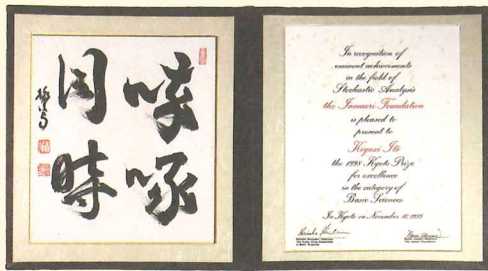 啐啄
同時
In recognition of
eminent achievements
in the field of
Stochastic Analysis
the Inamori Foundation
is pleased to
present to
Kiyosi Itô
the 1998 Kyoto Prize
for excellence
in the category of
Basic Sciences
In Kyoto on November 10, 1998